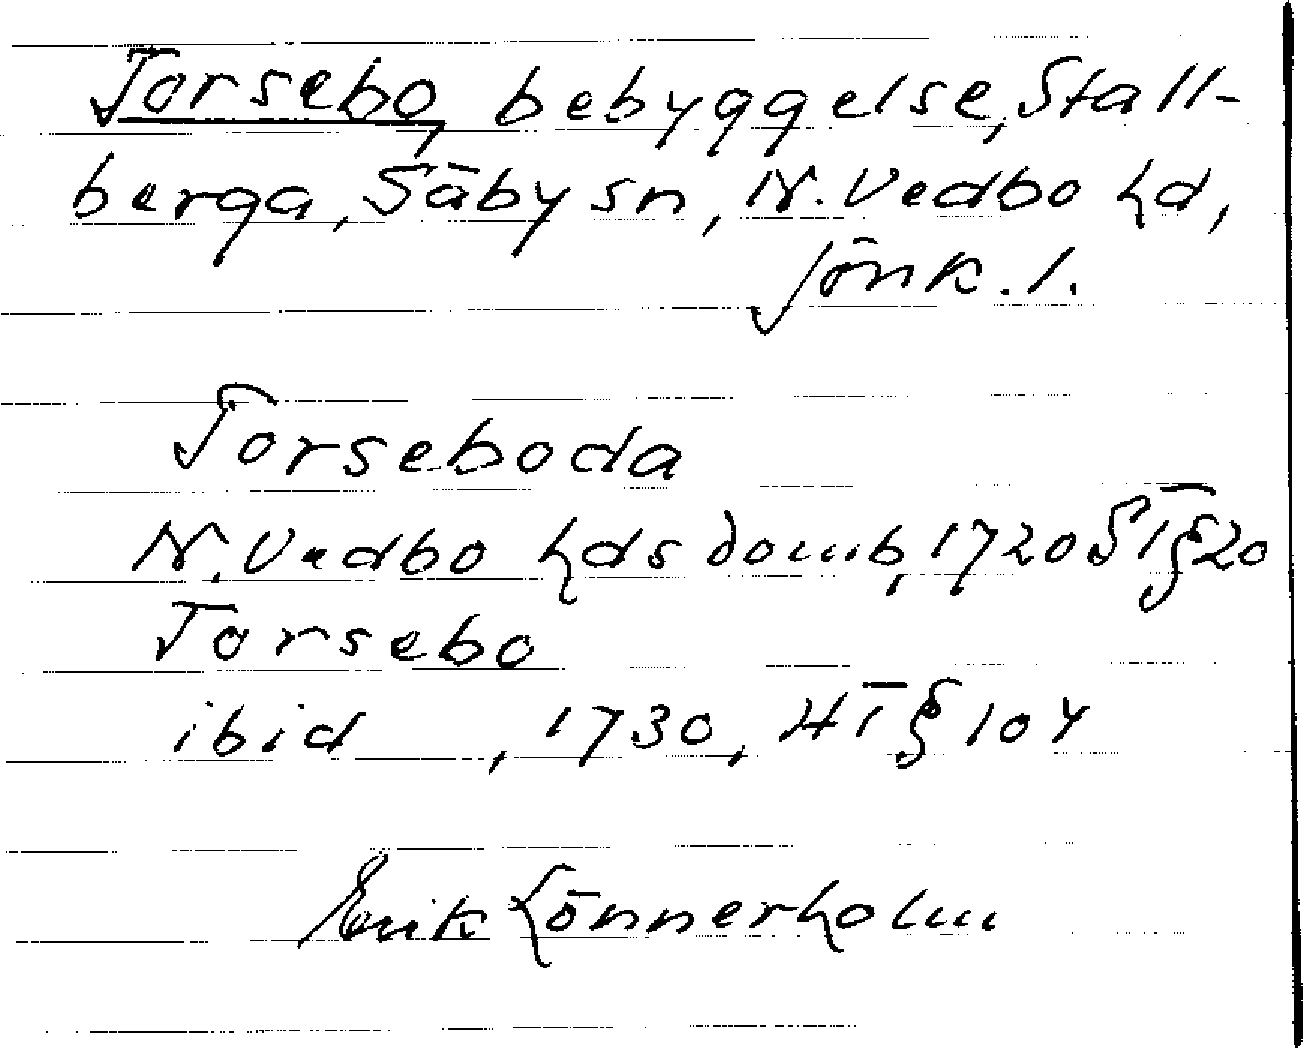 Torsebo, bebyggelse, Stall-
berga, Säby sn, N. Vedbo hd,
Jönk. l.
Torseboda
N. Vedbo hds domb, 1720 ST§20
Torsebo
ibid , 1730, HT§104
Erik Lönnerholm